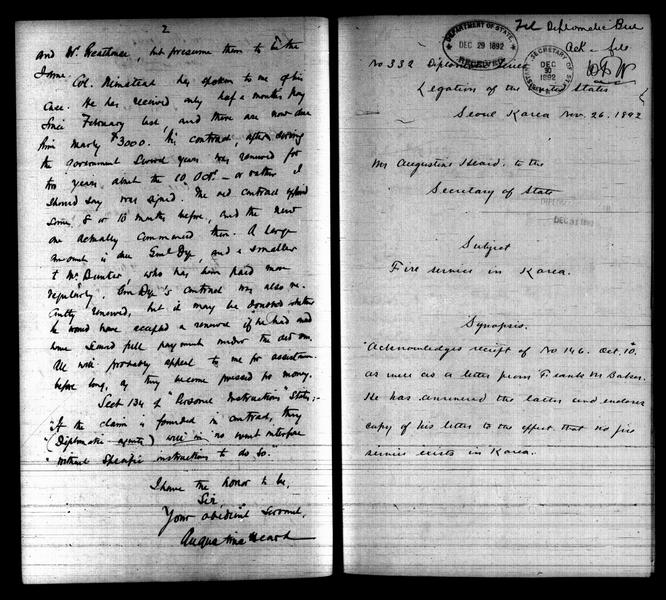 2
and Mr. Greathouse, but presume them to be the
same.
Col. Nienstead has spoken to me of his
case. He has received only half a months pay
since February last, and there are now due
him nearly $3000. His contract, after serving
the government several years was renewed for
two years about the 10 Oct. – or rather I
should say was signed. The old contract expired
some 8 or 10 months before, and the new
one actually commenced then. A large
amount is due Genl Dye, and a smaller
to Mr. Bunker, who has been paid more
regularly. Gen Dye's contract was also re-
cently renewed, but it may be doubted whether
he would have accepted a renewal if he had not
full payment under the old one.
All will probably appeal to me for assistance
before long, as they become pressed for money.
Sect 134 of "Personal Instructions" states:-
"If the claim is founded in contract, they
"(Diplomatic agents) will in no event interfere
"without specific instructions to do so."
I have the honor to be,
Sir,
Your obedient servant,
Augustine Heard
DEPARTMENT OF STATE
DEC 29 1892
RECEIVED
Diplomatic Bu
Ack - file
No 332 Diplomatic Series
Legation of the United States
Seoul Korea Nov. 26. 1892
Mr Augustine Heard. to the
Secretary of State
DEC 31 1892
Subject
Fire service in Korea.
Synopsis.
Acknowledges receipt of No 146. Oct. 10.
as well as a letter from Frank M Baker.
He has answered the latter and encloses
copy of his letter to the effect that no fire
service exists in Korea.